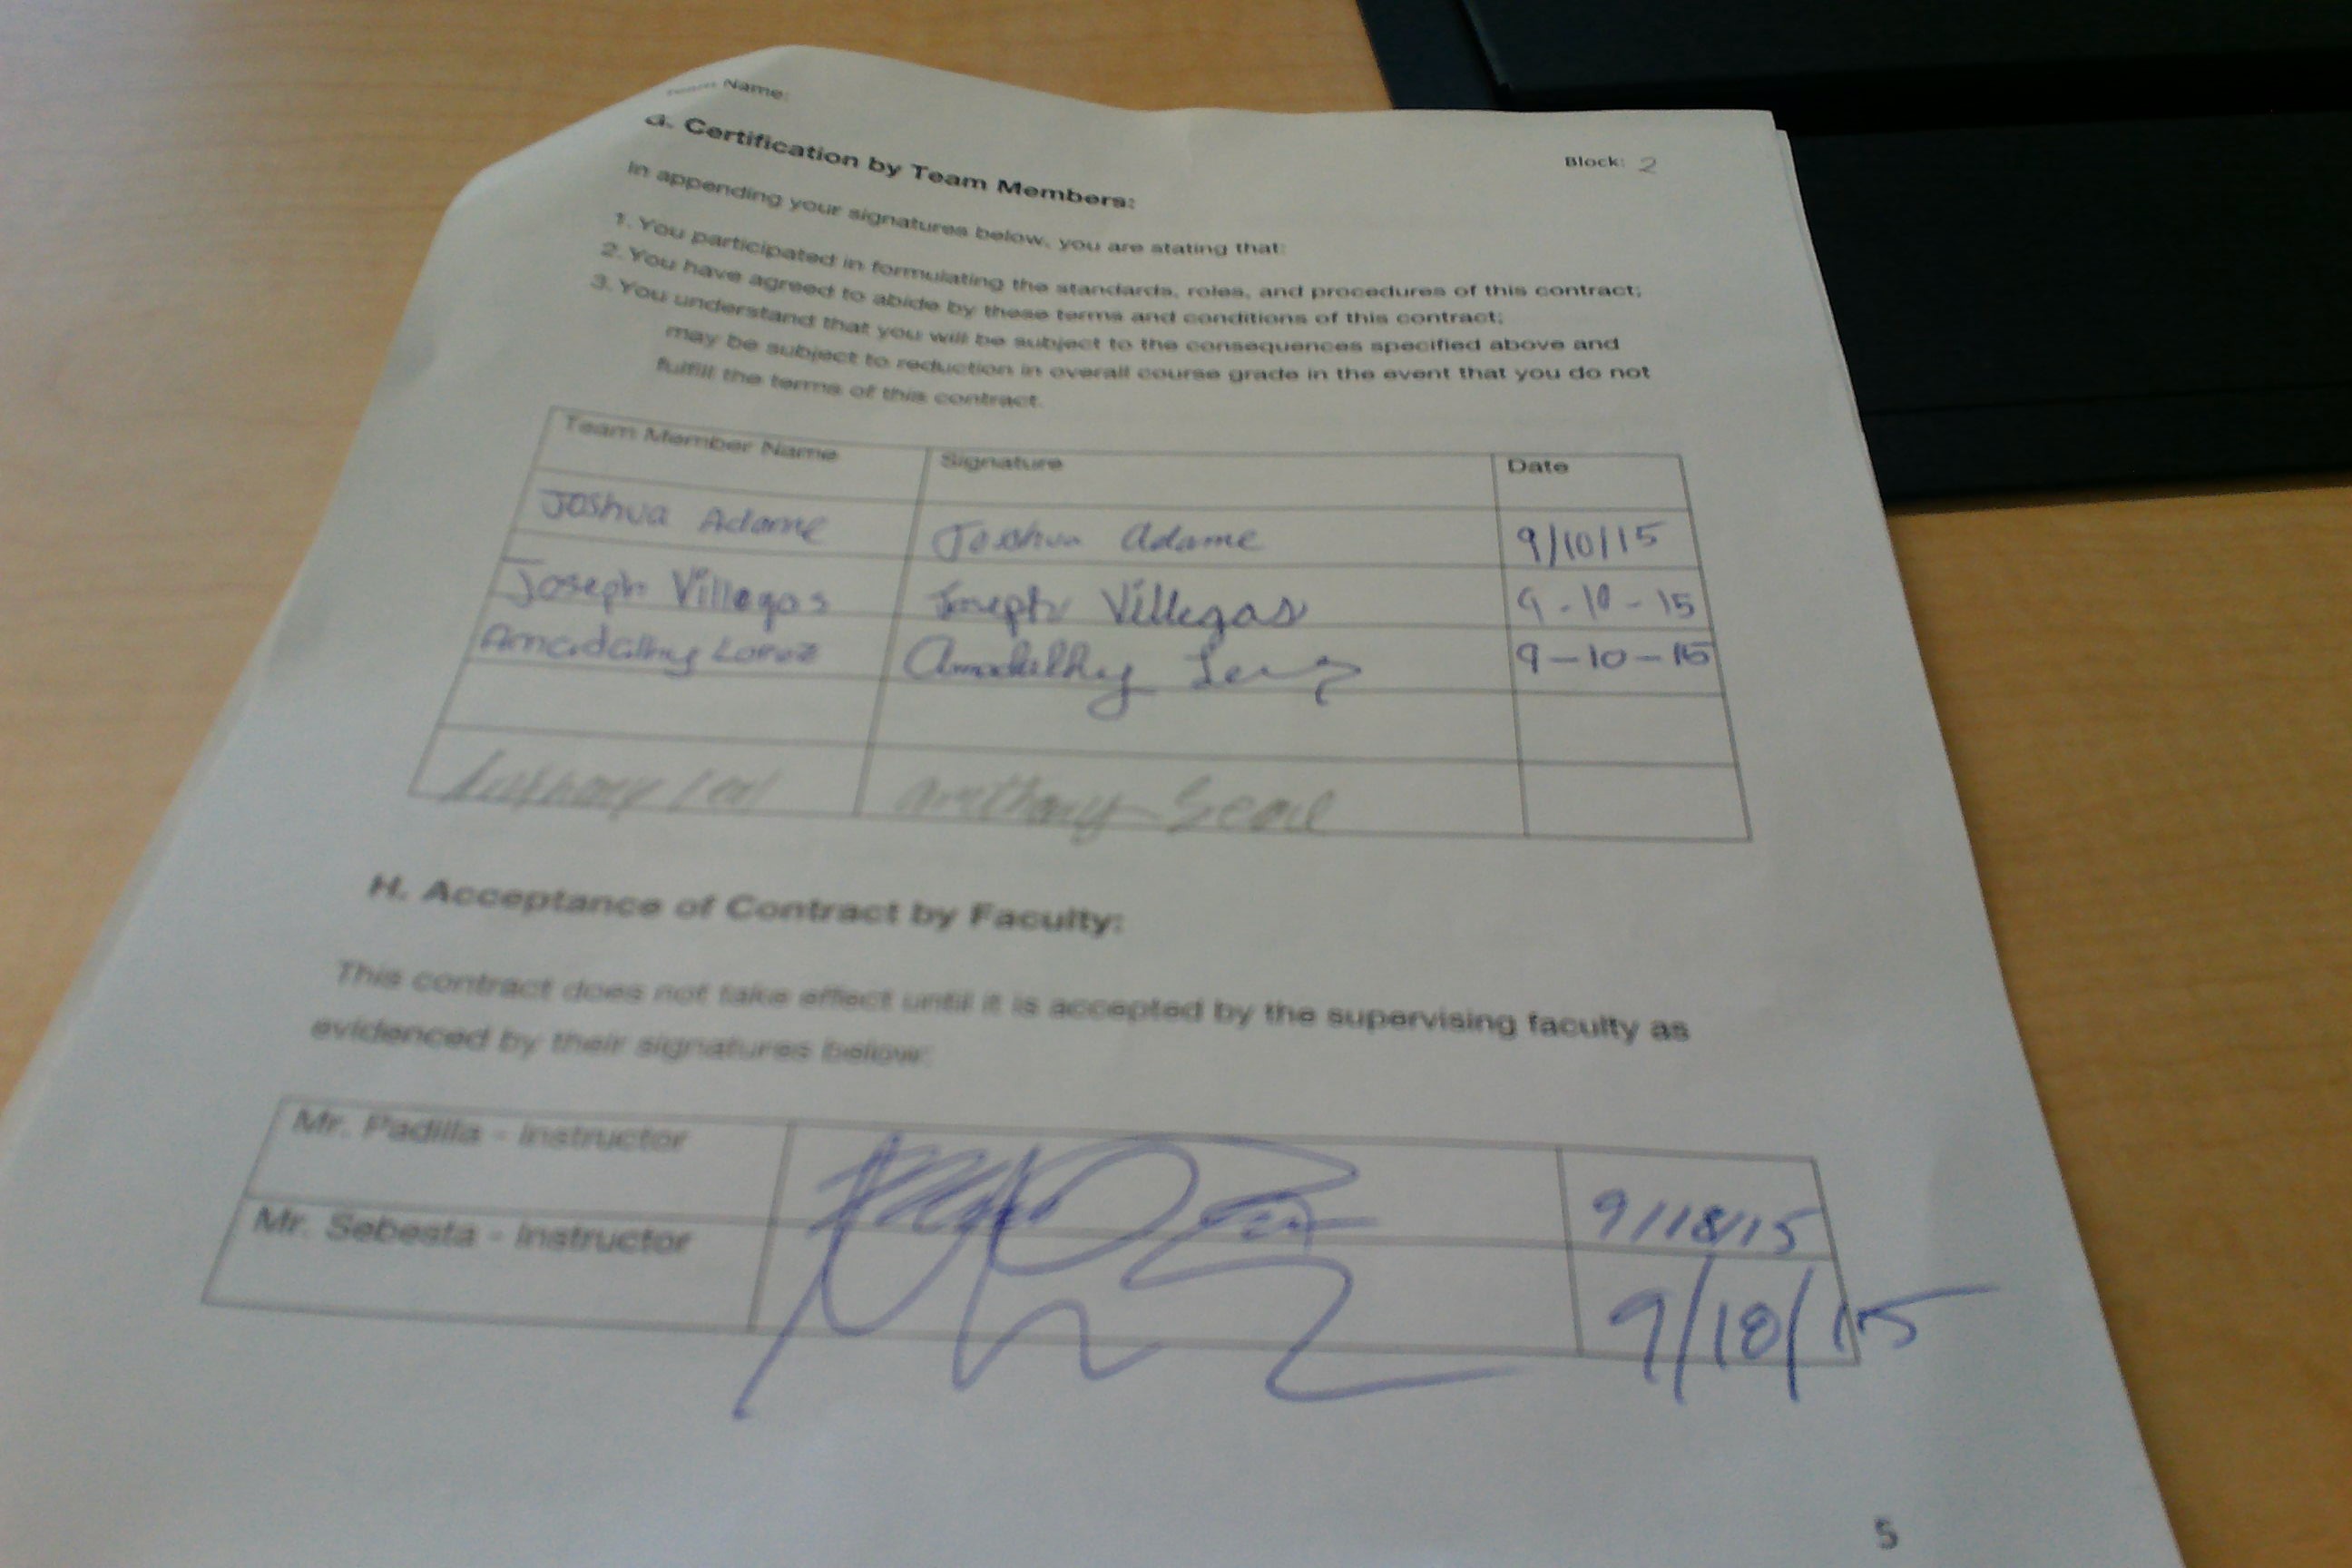 Name:
Block: 2
G. Certification by Team Members:
In appending your signatures below, you are stating that:
1. You participated in formulating the standards, roles, and procedures of this contract;
2. You have agreed to abide by these terms and conditions of this contract;
3. You understand that you will be subject to the consequences specified above and
may be subject to reduction in overall course grade in the event that you do not
fulfill the terms of this contract.
Team Member Name Signature Date
Joshua Adame Joshua Adame 9/10/15
Joseph Villegas Joseph Villegas 9-10-15
9-10-15
Anthony
H. Acceptance of Contract by Faculty:
This contract does not take effect until it is accepted by the supervising faculty as
evidenced by their signatures below:
Mr. Padilla - Instructor 9/18/15
Mr. Sebesta - Instructor 9/18/15
5